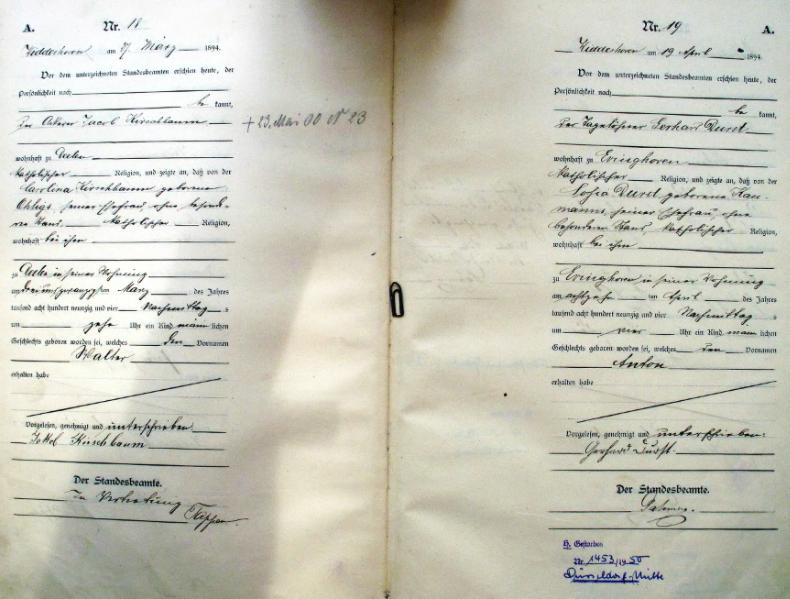 A.
Nr. 18
am 27 März 1894.
Vor dem unterzeichneten Standesbeamten erschien heute, der
Persönlichkeit nach
be kannt,
Der Ackerer Jacob Kirschbaum
wohnhaft zu
katholischer Religion, und zeigte an, daß von der
Carolina Kirschbaum geborene
Ohligs, seiner Ehefrau, ohne besonde-
ren Stand, katholischer Religion,
wohnhaft bei ihm
zu in seiner Wohnung
am März des Jahres
tausend acht hundert neunzig und vier Nachmittag s
um zehn Uhr ein Kind männlichen
Geschlechts geboren worden sei, welches den Vornamen
Walter
erhalten habe
Vorgelesen, genehmigt und unterschrieben
Jakob Kirschbaum
Der Standesbeamte.
In Vertretung
+ 23. Mai 00 № 23
Nr. 19
A.
am 19 April 1894.
Vor dem unterzeichneten Standesbeamten erschien heute, der
Persönlichkeit nach
be kannt,
Der Tagelöhner Gerhard Durst
wohnhaft zu Eringhoven
katholischer Religion, und zeigte an, daß von der
Durst geborene
seiner Ehefrau, ohne
besonderen Stand katholischer Religion,
wohnhaft bei ihm
zu Eringhoven in seiner Wohnung
am April des Jahres
tausend acht hundert neunzig und vier Nachmittag s
um vier Uhr ein Kind männlichen
Geschlechts geboren worden sei, welches den Vornamen
Anton
erhalten habe
Vorgelesen, genehmigt und unterschrieben:
Gerhard Durst
Der Standesbeamte.
Gestorben
Nr. 1453/1950
Düsseldorf-Mitte